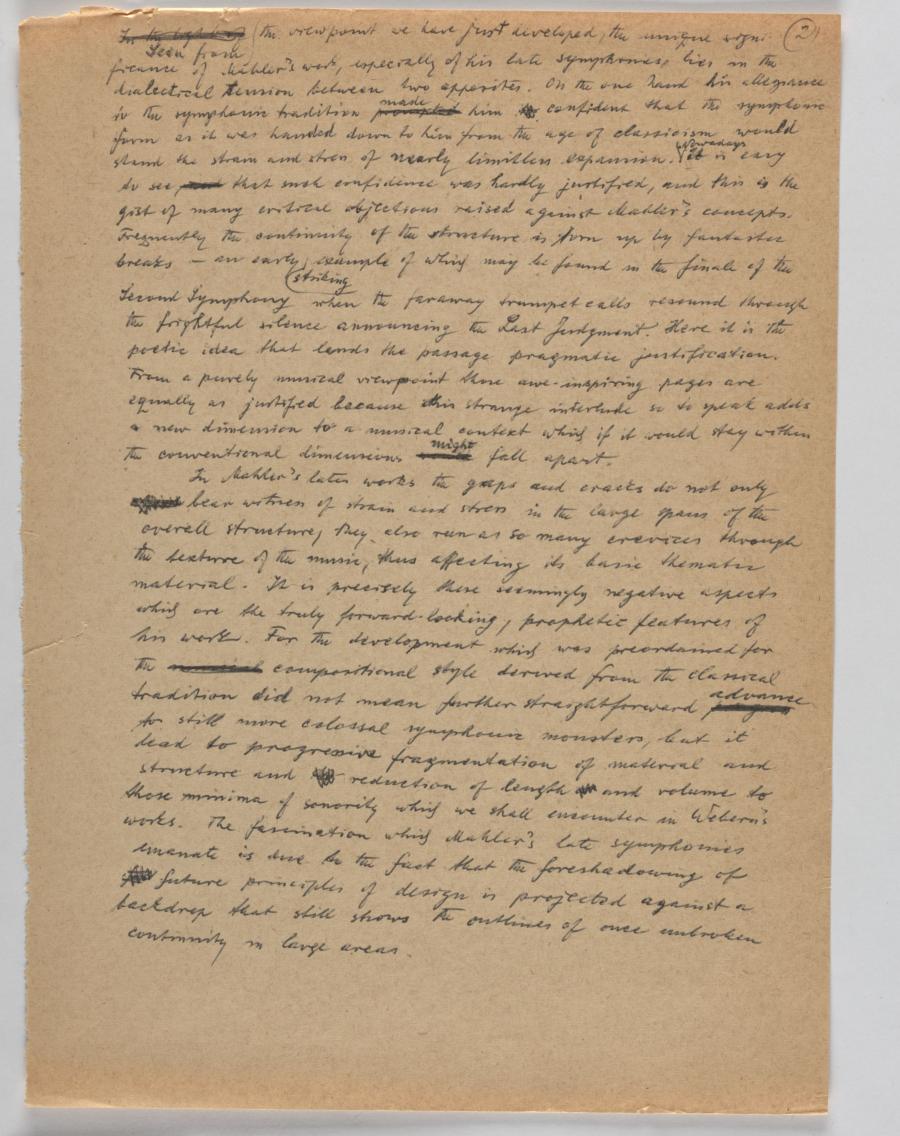 In the light of the viewpoint we have just developed, the unique signi- (2)
Seen from
ficance of Mahler's work, especially of his late symphonies lies in the
dialectical tension between two opposites. On the one hand his allegiance
to the symphonic tradition prompted made him confident that the symphonic
form as it was handed down to him from the age of classicism would
stand the strain and stress of nearly limitless expansion. Nowadays it is easy
to see, and that such confidence was hardly justified, and this is the
gist of many critical objections raised against Mahler's concepts.
Frequently the continuity of the structure is torn up by fantastic
breaks – an early, example of which may be found in the finale of the
striking
Second Symphony when the faraway trumpet calls resound through
the frightful silence announcing the Last Judgment. Here it is the
poetic idea that lends the passage pragmatic justification.
From a purely musical viewpoint those awe-inspiring pages are
equally as justified because this strange interlude so to speak adds
a new dimension to a musical context which if it would stay within
the conventional dimensions would might fall apart.
In Mahler's later works the gaps and cracks do not only
bear witness of strain and stress in the large spans of the
overall structure, they also run as so many crevices through
the texture of the music, thus affecting its basic thematic
material. It is precisely these seemingly negative aspects
which are the truly forward-looking, prophetic features of
his work. For the development which was preordained for
the musical compositional style derived from the classical
tradition did not mean further straightforward progress advance
to still more colossal symphonic monsters, but it
lead to progressive fragmentation of material and
structure and reduction of length and volume to
those minima of sonority which we shall encounter in Webern's
works. The fascination which Mahler's late symphonies
emanate is due to the fact that the foreshadowing of
future principles of design is projected against a
backdrop that still shows the outlines of once unbroken
continuity in large areas.